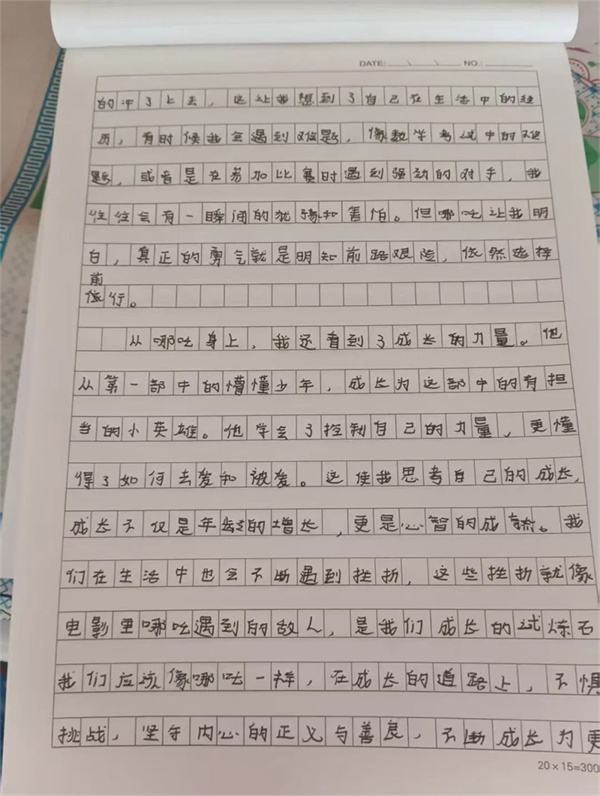 DATE: \ \ NO.:
的冲了上去，这让我想到了自己在生活中的经
历，有时候我会遇到难题，像数学考试中的难
题，或者是在参加比赛时遇到强劲的对手，我
往往会有一瞬间的犹豫和害怕。但哪吒让我明
白，真正的勇气就是明知前路艰险，依然选择
前
行。
从哪吒身上，我还看到了成长的力量。他
从第一部中的懵懂少年，成长为这部中的有担
当的小英雄。他学会了控制自己的力量，更懂
得了如何去爱和被爱。这使我思考自己的成长，
成长不仅是年龄的增长，更是心智的成熟。我
们在生活中也会不断遇到挫折，这些挫折就像
电影里哪吒遇到的敌人，是我们成长的试炼石
我们应该像哪吒一样，在成长的道路上，不惧
挑战，坚守内心的正义与善良，不断成长为更
20×15=300